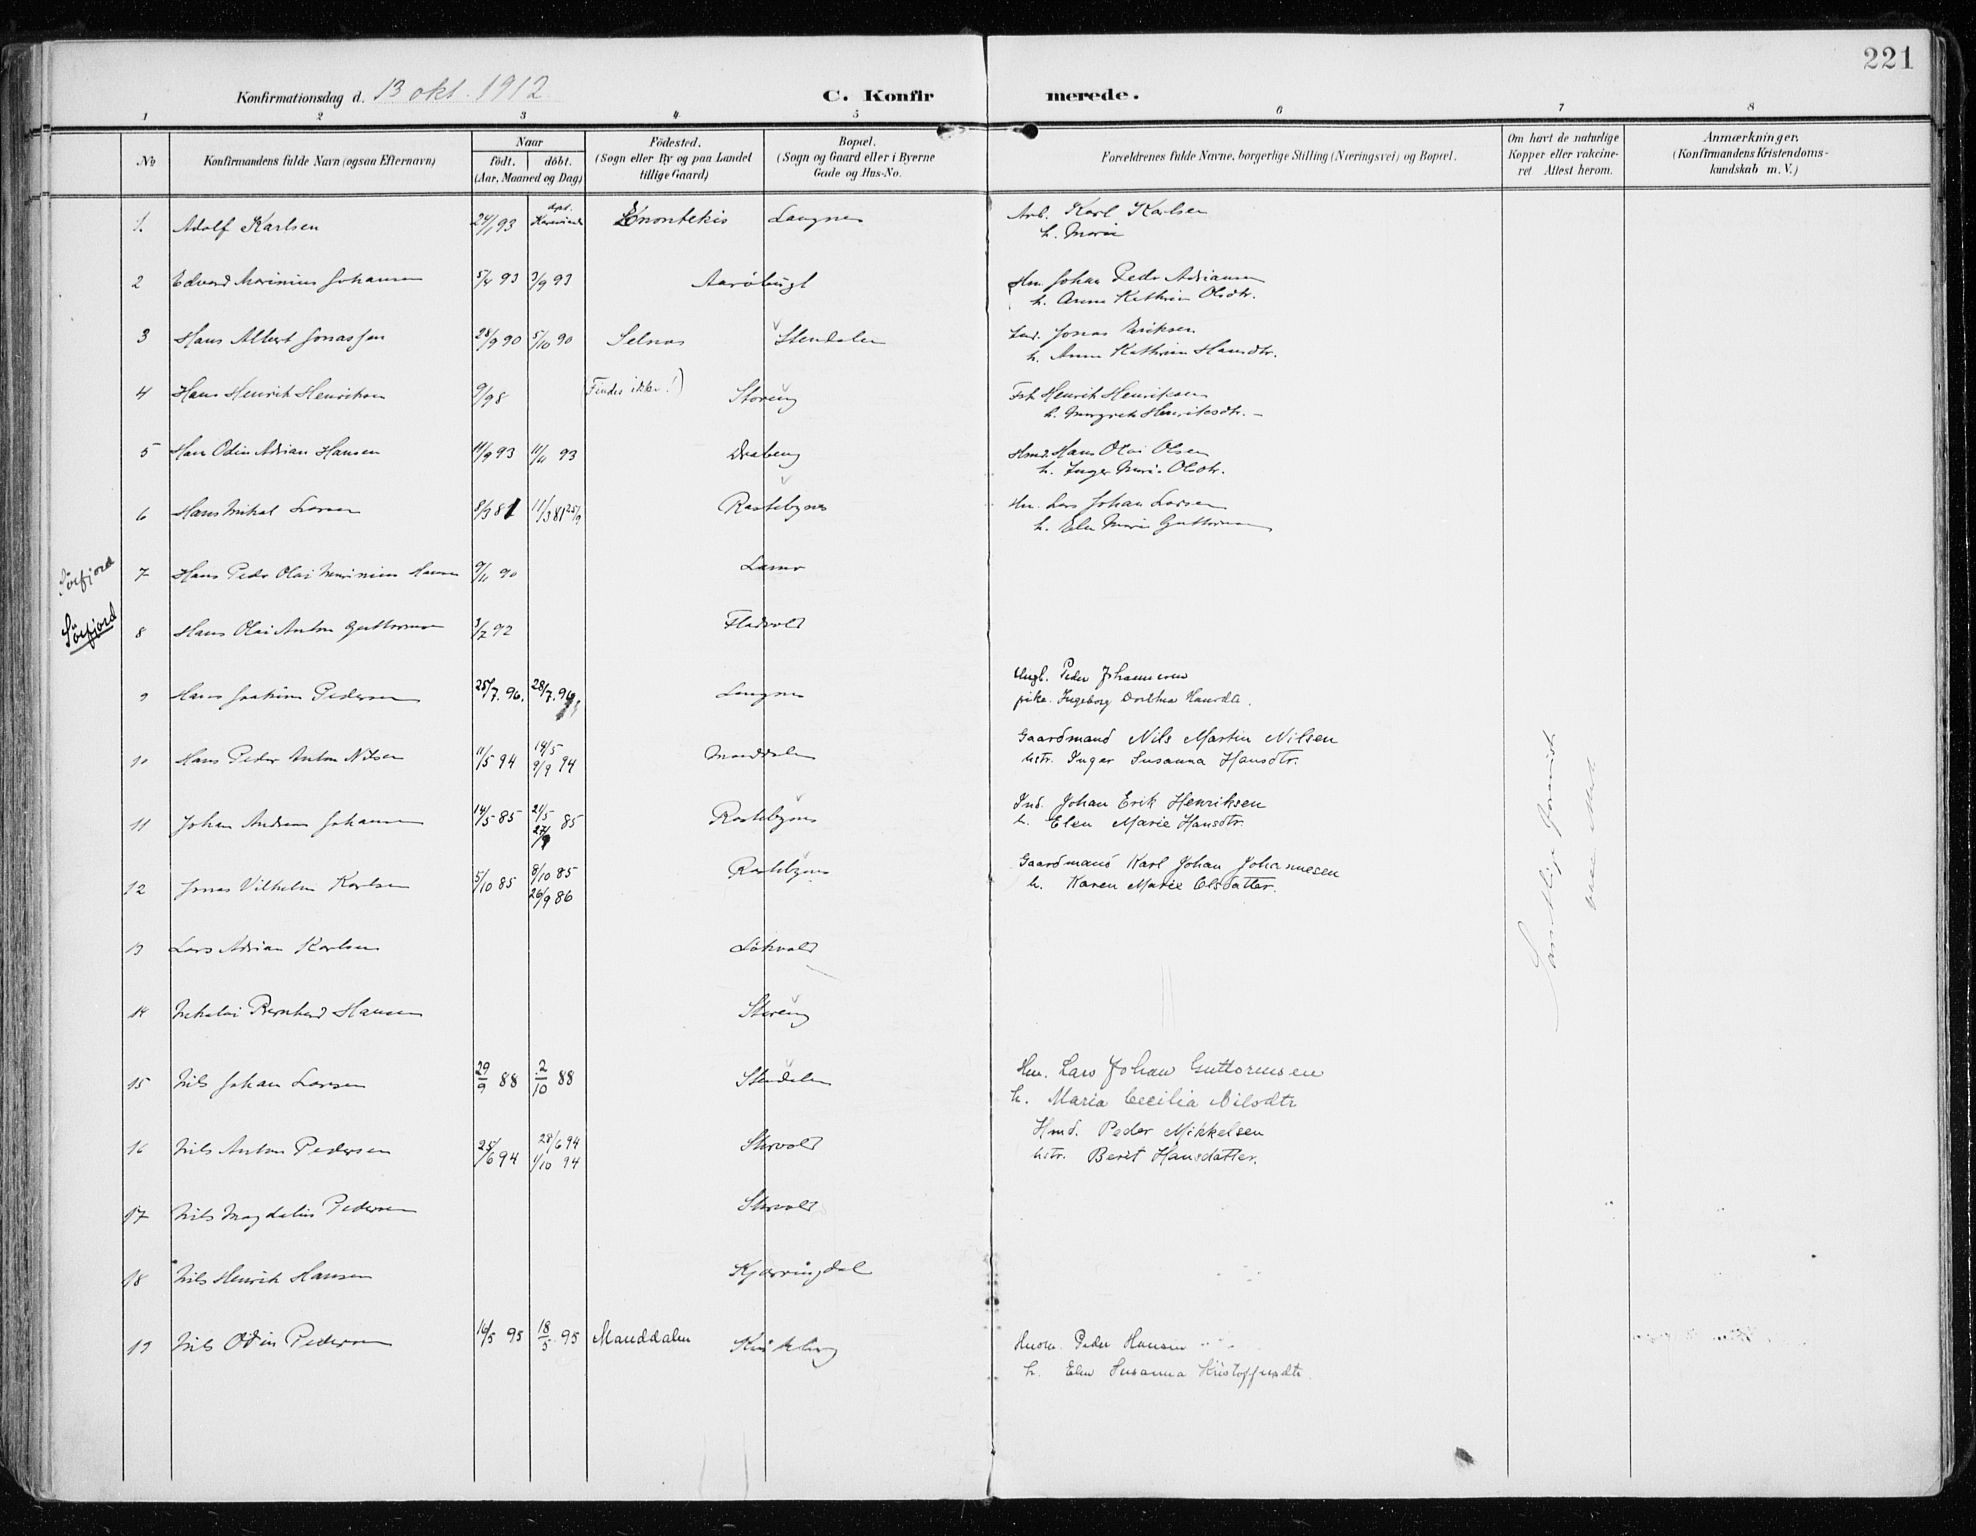 221
Konfirmationsdag d. 13 okt. 1912 C. Konfirmerede.
1 2 3 4 5 6 7 8
No
Konfirmandens fulde Navn (ogsaa Efternavn)
Naar
födt. döbt.
(Aar, Maaned og Dag)
Födested.
(Sogn eller By og paa Landet
tillige Gaard)
Bopæl.
(Sogn og Gaard eller i Byerne
Gade og Hus-No.
Forældrenes fulde Navne, borgerlige Stilling (Næringsvei) og Bopæl.
Om havt de naturlige
Kopper eller vakcine-
ret Attest herom.
Anmærkninger.
(Konfirmandens Kristendoms-
kundskab m. V.)
1. Adolf Karlsen 24/1 93 Enontekis Langnes
Arb. Karl Karlsen
h. Marie
2 Edvard Marinius Johansen 5/4 93 3/9 93 Aaröbugt
Hm. Johan Peder Adriansen
h. Anne Kathrin Olsdtr.
3 Hans Albert Jonassen 28/9 90 5/10 90 Selnes Stendalen
Ind. Jonas Eriksen
h. Anne Kathrine Hansdtr.
4 Hans Henrik Henriksen 9/98 (Findes ikke!) Storeng
Fsk Henrik Henriksen
h. Margrethe Henriksdtr.
5 Hans Odin Adrian Hansen 14/9 93 11/11 93 Drabeng
Hmd. Hans Olai Olsen
h. Inger Marie Olsdtr.
6 Hans Mikal Larsen 8/3 81 11/3 81 25/9 Rastebynes
Hm. Lars Johan Larsen
h. Elen Marie Guttormsen
Sörfjord
7 Hans Peder Olai Marinius Hansen 9/11 90
Sörfjord
8 Hans Olai Anton Guttormsen 3/7 92 Fladvold
9 Hans Joakim Pedersen 25/7. 96. 28/7. 96 Langnes
Ungk. Peder Johannesen
pike. Ingeborg Dorthea Hansdtr.
10 Hans Peder Anton Nilsen 11/5 94 14/5 9/9 94 Manddalen
Gaardmand Nils Martin Nilsen
hstr. Inger Susanna Hansdtr.
11 Johan Andreas Johansen 14/5 85 21/5 85 27/9 Rastebynes
Ind. Johan Erik Henriksen
h. Elen Marie Hansdtr.
12 Jonas Vilhelm Karlsen 5/10 85 8/10 85 26/9 86 Rastebynes
Gaardmand Karl Johan Johannesen
h. Karen Marie Olsdatter.
13 Lars Adrian Karlsen Lökvold
14 Nikolai Bernhard Hansen Storeng
15 Nils Johan Larsen 29/9 88 2/10 88 Stendalen
Hm. Lars Johan Guttormsen
h. Maria Cecilia Nilsdtr
16 Nils Anton Pedersen 25/6 94 28/6 94 1/10 94 Skrvold
Hmd. Peder Mikkelsen
hstr. Berit Hansdatter.
17 Nils Magdalius Pedersen Skrvold
18 Nils Henrik Hansen Kjærringdal
19 Nils Odin Pedersen 16/5 95 18/5 95 Manddalen
Peder Hansen
h. Elen Susanna Kristoffersdtr.
Samtlige